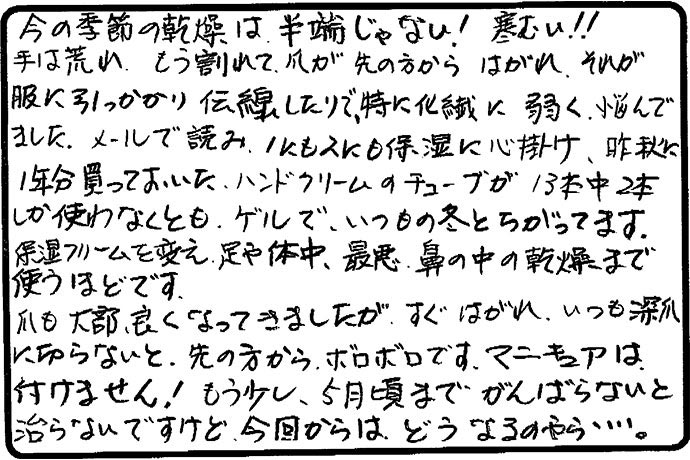 今の季節の乾燥は、半端じゃない！ 寒むい!!
手は荒れ、もう割れて、爪が先の方からはがれ、それが
服に引っかかり伝線したりで、特に化繊に弱く、悩んで
ました。メールで読み、1にも2にも保湿に心掛け、昨秋に
1年分買っておいた、ハンドクリームのチューブが13本中2本
しか使わなくとも、ゲルで、いつもの冬とちがってます。
保湿クリームを変え、足や体中、最悪、鼻の中の乾燥、まで
使うほどです。
爪も大部、良くなってきましたが、すぐはがれ、いつも深爪
に切らないと、先の方から、ボロボロです。マニキュアは、
付けません！もう少し、5月頃までがんばらないと
治らないですけど、今回からは、どうなるのやら・・・・。